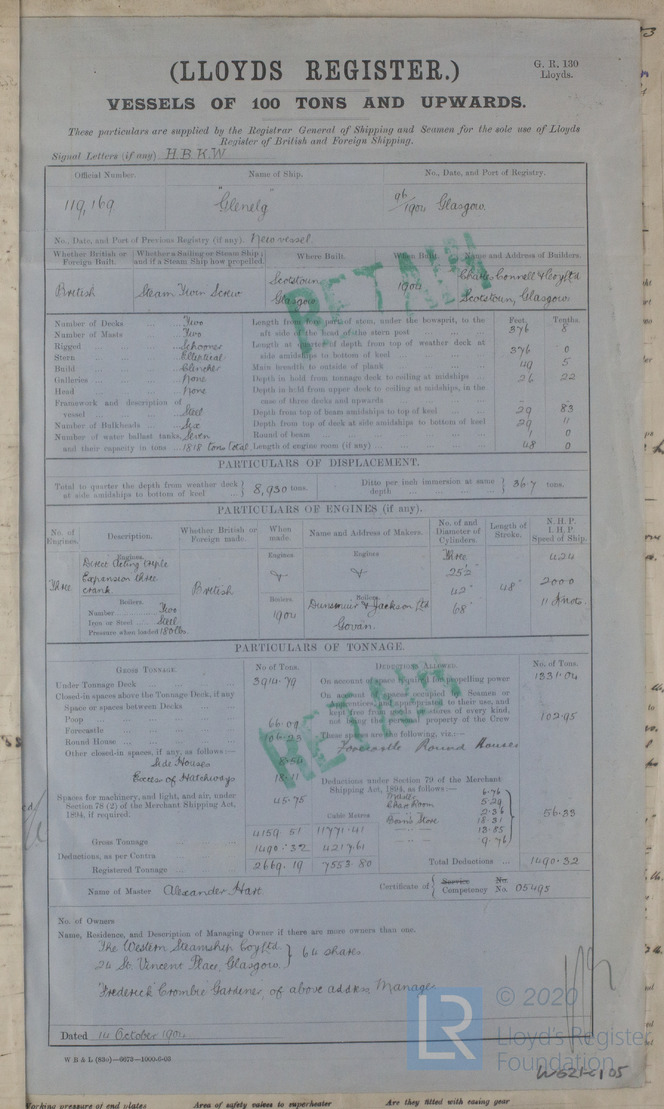 (LLOYDS REGISTER.)
G. R. 130
Lloyds.
VESSELS OF 100 TONS AND UPWARDS.
These particulars are supplied by the Registrar General of Shipping and Seamen for the sole use of Lloyds
Register of British and Foreign Shipping.
Signal Letters (if any) H.B.K.W
Official Number. Name of Ship. No., Date, and Port of Registry.
119,169 "Glenelg" 1904 Glasgow
No., Date, and Port of Previous Registry (if any) New vessel
Whether British or Foreign Built. Whether a Sailing or Steam Ship; and if a Steam Ship how propelled. Where Built. When Built. Name and Address of Builders.
British Steam Twin Screw Scotstoun, Glasgow 1904 Charles Connell & Coy Ltd Scotstoun, Glasgow
RETAIN
Number of Decks Two
Number of Masts Two
Rigged Schooner
Stern Elliptical
Build Clincher
Galleries None
Head None
Framework and description of vessel Steel
Number of Bulkheads Six
Number of water ballast tanks, Seven
and their capacity in tons 1818 tons total
Feet. Tenths.
Length from fore part of stem, under the bowsprit, to the aft side of the head of the stern post 376 8
Length at quarter of depth from top of weather deck at side amidships to bottom of keel 376 0
Main breadth to outside of plank 49 5
Depth in hold from tonnage deck to ceiling at midships 26 22
Depth in hold from upper deck to ceiling at midships, in the case of three decks and upwards - -
Depth from top of beam amidships to top of keel 29 83
Depth from top of deck at side amidships to bottom of keel 29 11
Round of beam 1 0
Length of engine room (if any) 48 0
PARTICULARS OF DISPLACEMENT.
Total to quarter the depth from weather deck at side amidships to bottom of keel 8,930 tons. Ditto per inch immersion at same depth 36.7 tons.
PARTICULARS OF ENGINES (if any).
No. of Engines. Description. Whether British or Foreign made. When made. Name and Address of Makers. No. of and Diameter of Cylinders. Length of Stroke. N.H.P. I.H.P. Speed of Ship.
Engines. Engines Engines Three 424
Three Direct Acting triple Expansion three crank British 25½" 42" 68" 48" 2000 11 Knots
Boilers. Boilers Boilers
Number Two
Iron or Steel Steel
Pressure when loaded 180 lbs
1904 Dunsmuir & Jackson Ltd Govan.
PARTICULARS OF TONNAGE.
GROSS TONNAGE. No. of Tons. DEDUCTIONS ALLOWED. No. of Tons.
Under Tonnage Deck 3914.79
On account of space required for propelling power 1331.04
Closed-in spaces above the Tonnage Deck, if any
Space or spaces between Decks
Poop 66.09
Forecastle 106.23
Round House
Other closed-in spaces, if any, as follows:—
Side Houses 8.54
Excess of Hatchways
On account of spaces occupied by Seamen or Apprentices, and appropriated to their use, and kept free from Goods or Stores of every kind, not being the personal property of the Crew 102.95
These spaces are the following, viz.:—
Forecastle Round Houses
RETAIN
Spaces for machinery, and light, and air, under Section 78 (2) of the Merchant Shipping Act, 1894, if required. 45.75
Deductions under Section 79 of the Merchant Shipping Act, 1894, as follows:—
Master 6.76
Chart Room 5.29
2.36
Bosn's Store 18.31
13.85
9.76
56.33
Cubic Metres
Gross Tonnage 4159.51 11771.41
Deductions, as per Contra 1490.32 4217.61
Registered Tonnage 2669.19 7553.80
Total Deductions 1490.32
Name of Master Alexander Hart
Certificate of Service No. Competency No. 05495
No. of Owners
Name, Residence, and Description of Managing Owner if there are more owners than one.
The Western Steamship Coy Ltd. 64 shares
24 St. Vincent Place, Glasgow.
Frederick Crombie Gardiner, of above address Manager
Dated 14 October 1904
W B & L (83o)—6673—1000-6-03
LR
© 2020
Lloyd's Register
Foundation
Working pressure of end plates Area of safety valves to superheater Are they fitted with easing gear